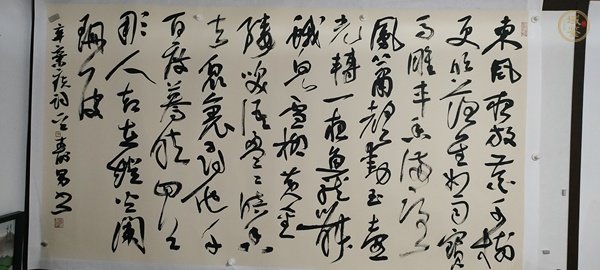 東風夜放花千樹
更吹落星如雨寶
馬雕車香滿路
鳳簫聲動玉壺
光轉一夜魚龍舞
蛾兒雪柳黃金
縷笑語盈盈暗香
去衆裏尋他千
百度驀然回首
那人却在燈火闌
珊處
辛棄疾詞